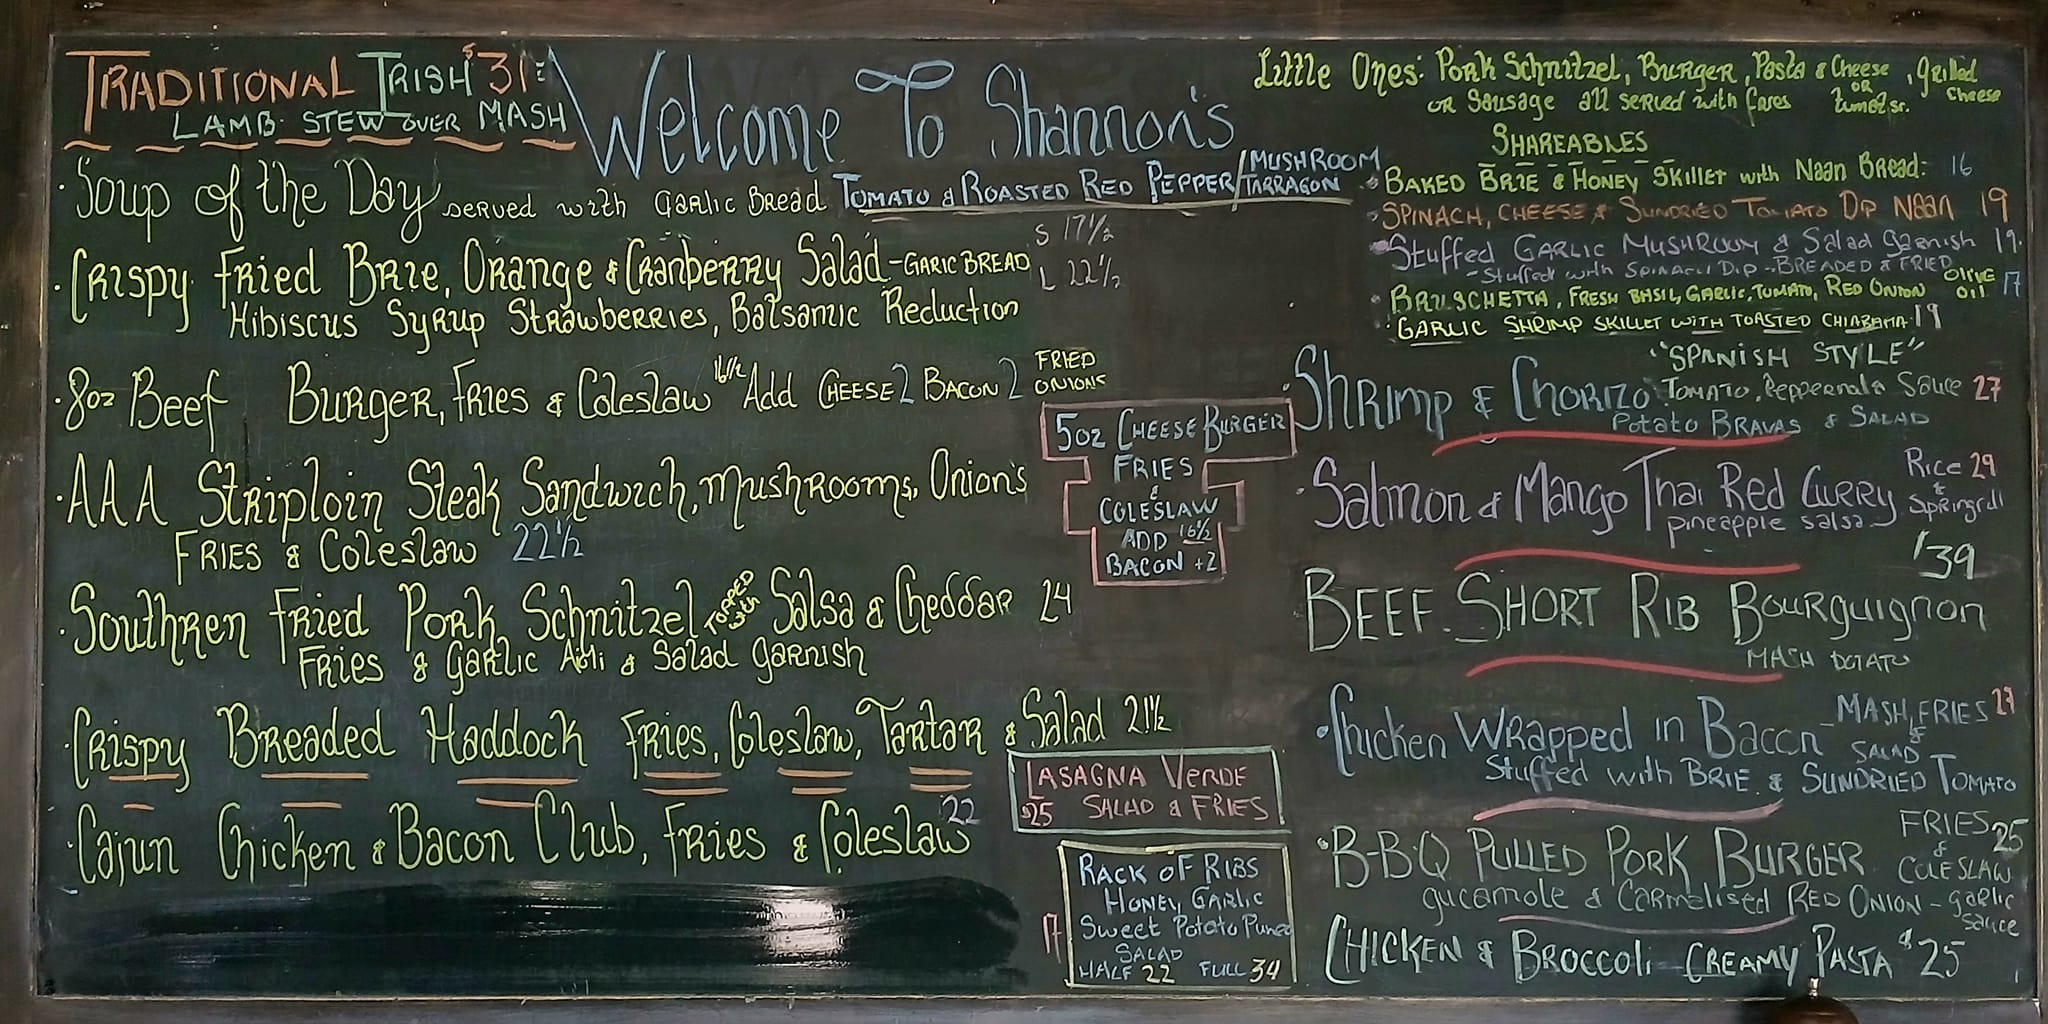 TRADITIONAL IRISH $31
LAMB STEW OVER MASH
Welcome To Shannon's
· Soup of the Day served with Garlic Bread TOMATO & ROASTED RED PEPPER/MUSHROOM TARRAGON
· Crispy Fried Brie, Orange & Cranberry Salad - GARIC BREAD
S 17½
L 22½
Hibiscus Syrup Strawberries, Balsamic Reduction
· 8oz Beef Burger, Fries & Coleslaw 16½ Add CHEESE 2 BACON 2 FRIED ONIONS
· AAA Striploin Steak Sandwich, Mushrooms, Onion's
FRIES & Coleslaw 22½
· Southren Fried Pork Schnitzel TOPPED with Salsa & Cheddar 24
Fries & Garlic Aoli & Salad Garnish
· Crispy Breaded Haddock Fries, Coleslaw, Tartar & Salad 21½
· Cajun Chicken & Bacon Club, Fries & Coleslaw 22
5oz CHEESE BURGER
FRIES
&
COLESLAW
ADD 16½
BACON +2
LASAGNA VERDE
$25 SALAD & FRIES
RACK OF RIBS
HONEY, GARLIC
Sweet Potato Puree
SALAD
HALF 22 FULL 34
17
Little Ones: Pork Schnitzel, Burger, Pasta & Cheese, grilled cheese
or Sausage all served with fries OR
SHAREABLES
· BAKED BRIE & HONEY SKILLET with Naan Bread: 16
· SPINACH, CHEESE & SUNDRIED TOMATO DIP NAAN 19
· Stuffed GARLIC MUSHROOM & Salad Garnish 19.
- Stuffed with SPINACH DIP - BREADED & FRIED
· BRUSCHETTA, FRESH BASIL, GARLIC, TOMATO, RED ONION OLIVE OIL 17
· GARLIC SHRIMP SKILLET WITH TOASTED CHIABAHA 19
"SPANISH STYLE"
· Shrimp & Chorizo TOMATO, Sauce 27
Potato BRAVAS & SALAD
· Salmon & Mango Thai Red Curry Rice 29
& Springroll
pineapple salsa
$39
BEEF SHORT RIB Bourguignon
MASH POTATO
· Chicken Wrapped in Bacon - MASH, FRIES 27
& SALAD
Stuffed with BRIE & SUNDRIED TOMATO
· B-B-Q PULLED PORK BURGER FRIES 25
& COLESLAW
gucamole & Carmelised RED ONION - garlic sauce
CHICKEN & BROCCOLI CREAMY PASTA $25